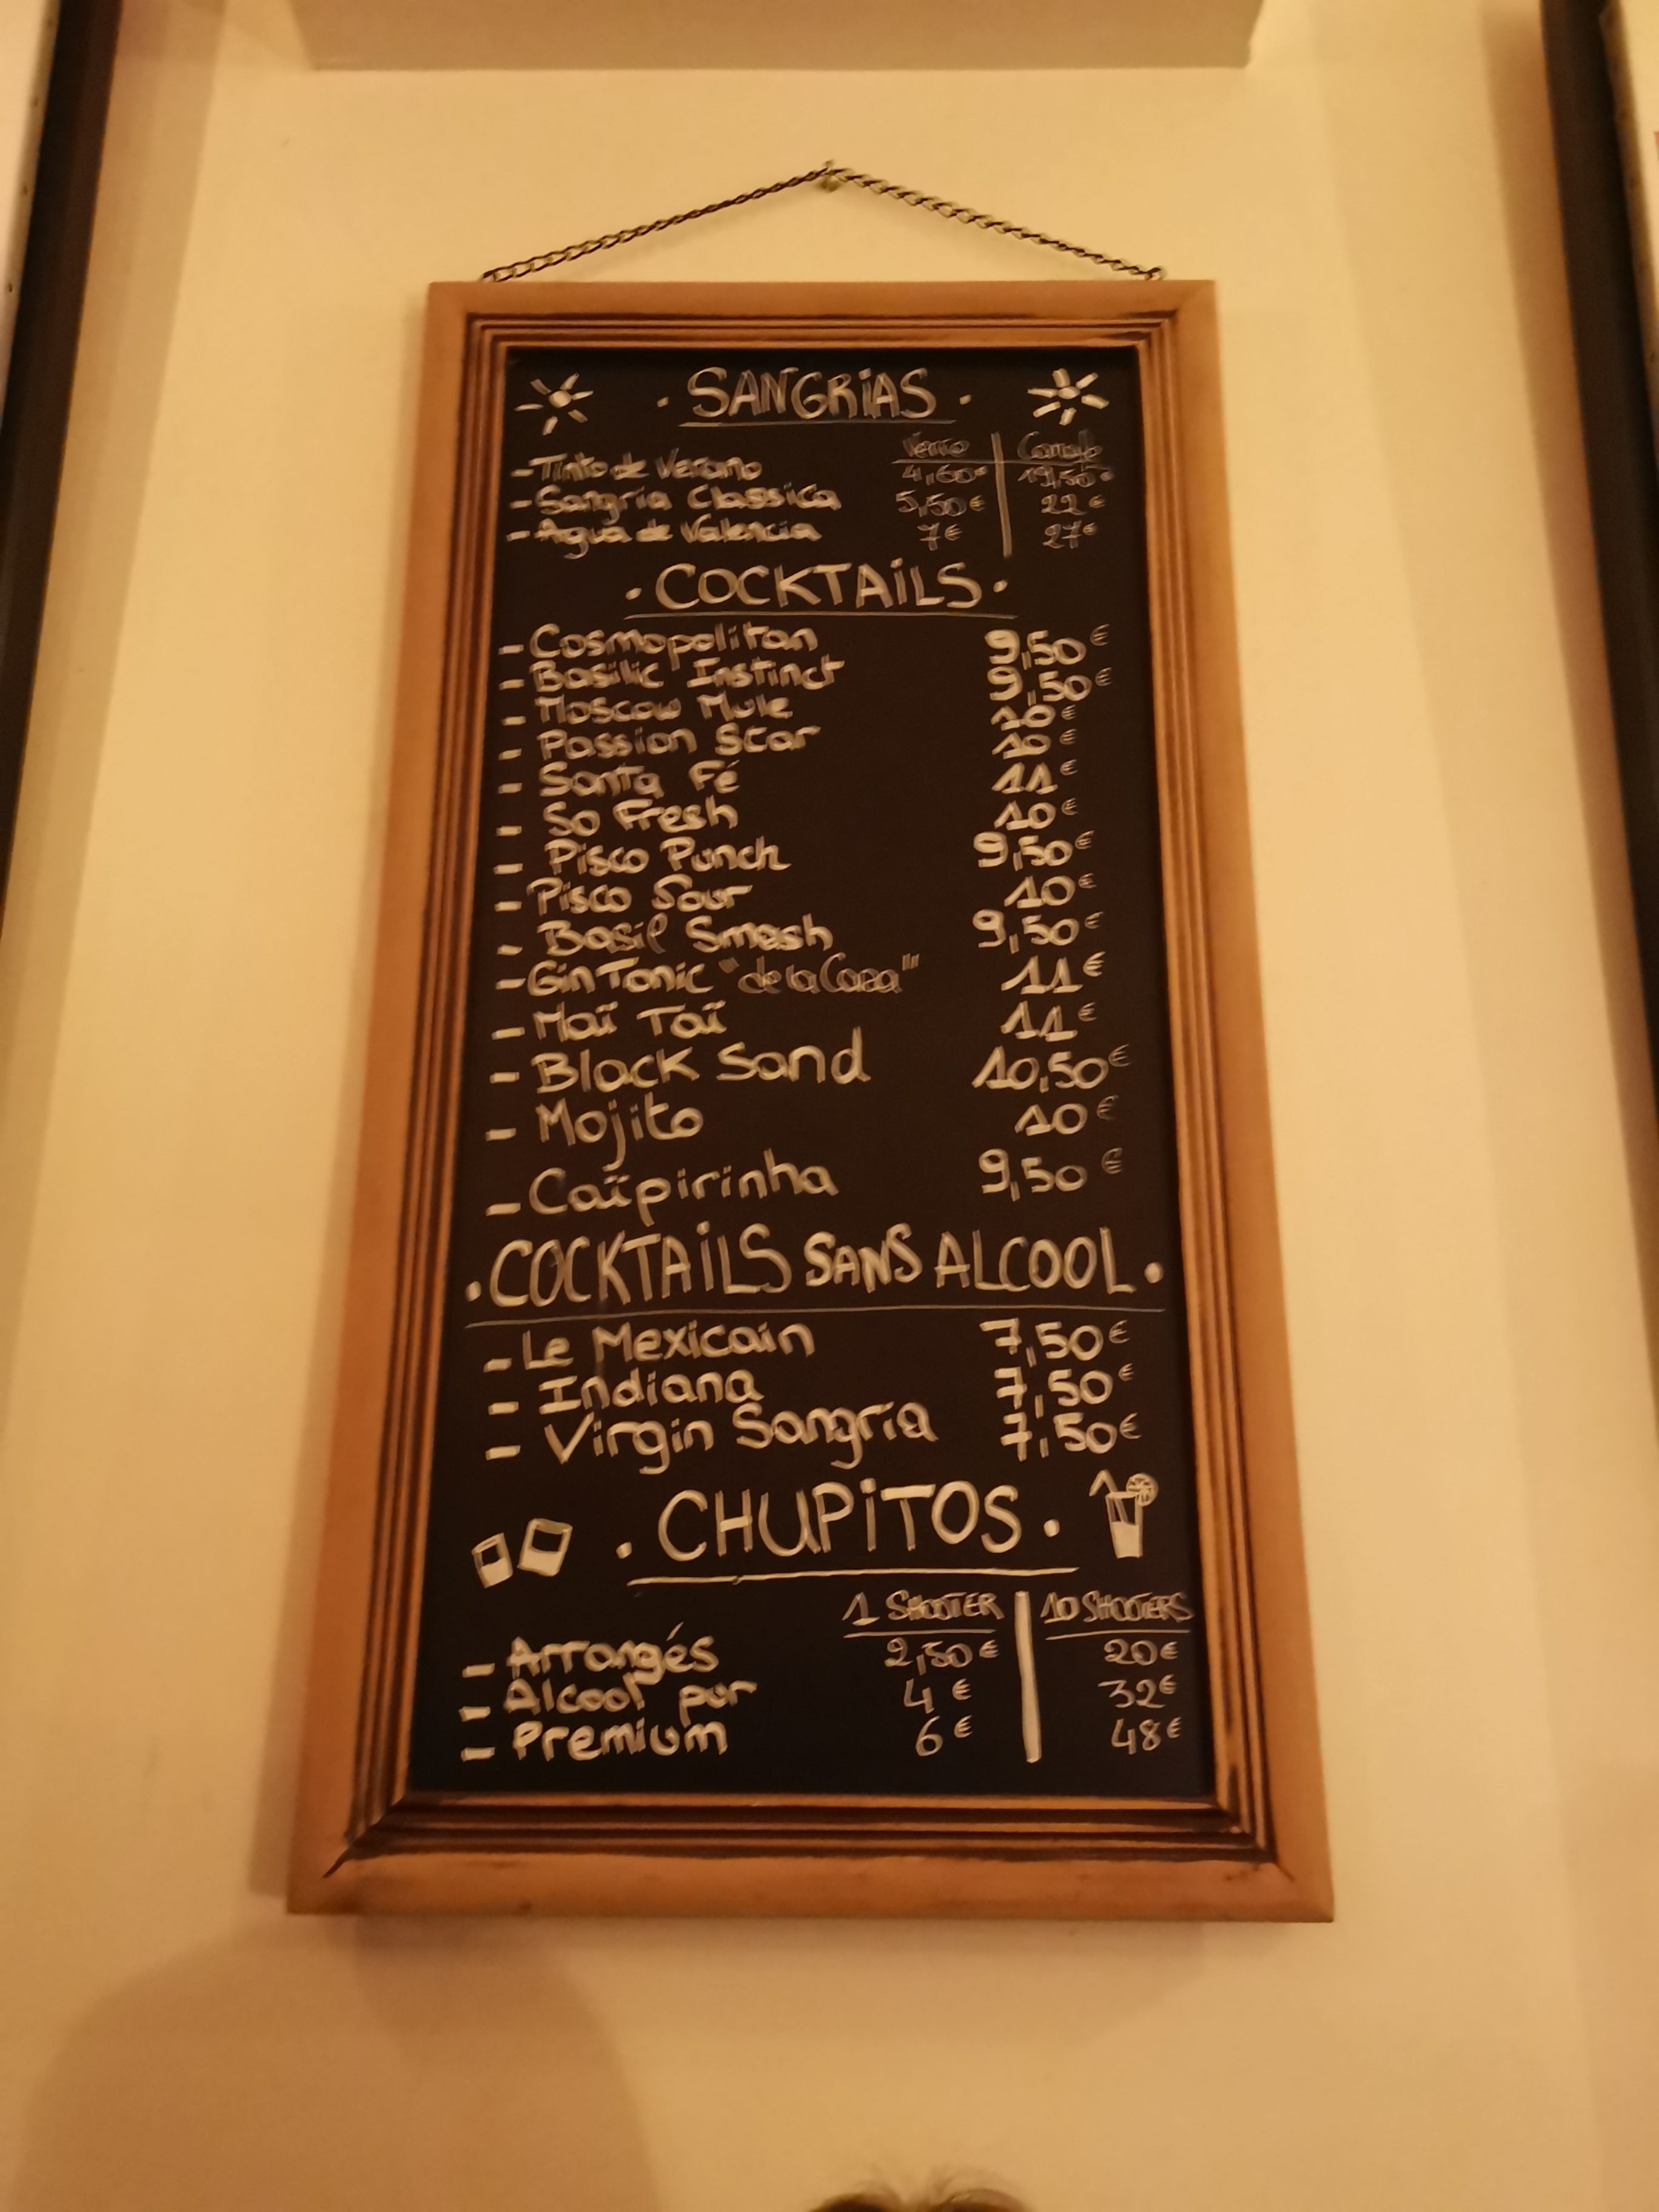 · SANGRiAS ·
Verre Carafe
- Tinto de Verano 4,60€ 19,50€
- Sangria Classica 5,50€ 22€
- Agua de Valencia 7€ 27€
· COCKTAiLS ·
- Cosmopolitan 9,50€
- Basilic Instinct 9,50€
- Moscow Mule 10€
- Passion Star 10€
- Santa Fé 11€
- So Fresh 10€
- Pisco Punch 9,50€
- Pisco Sour 10€
- Basil Smash 9,50€
- Gin Tonic "de la Casa" 11€
- Maï Taï 11€
- Black Sand 10,50€
- Mojito 10€
- Caïpirinha 9,50€
· COCKTAiLS SANS ALCOOL ·
- Le Mexicain 7,50€
- Indiana 7,50€
- Virgin Sangria 7,50€
· CHUPiTOS ·
1 SHOOTER 10 SHOOTERS
- Arrangés 2,50€ 20€
- Alcool pur 4€ 32€
- Premium 6€ 48€